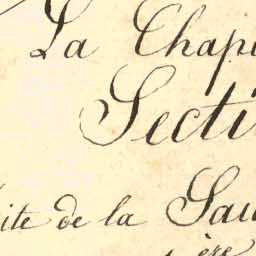 La Chap
Secti
ite de la Sau
ère